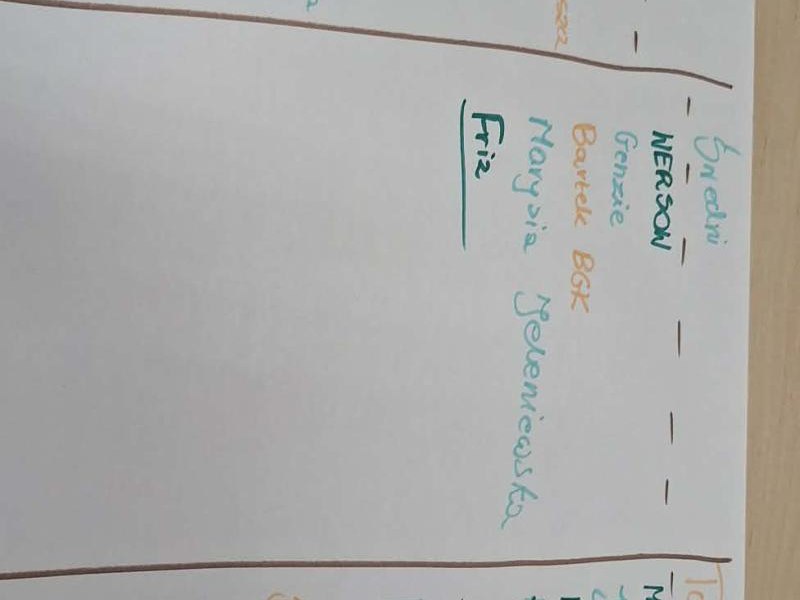 Średni
NERSON
Genzie
Bartek BGK
Marysia Jeleniewska
Friz